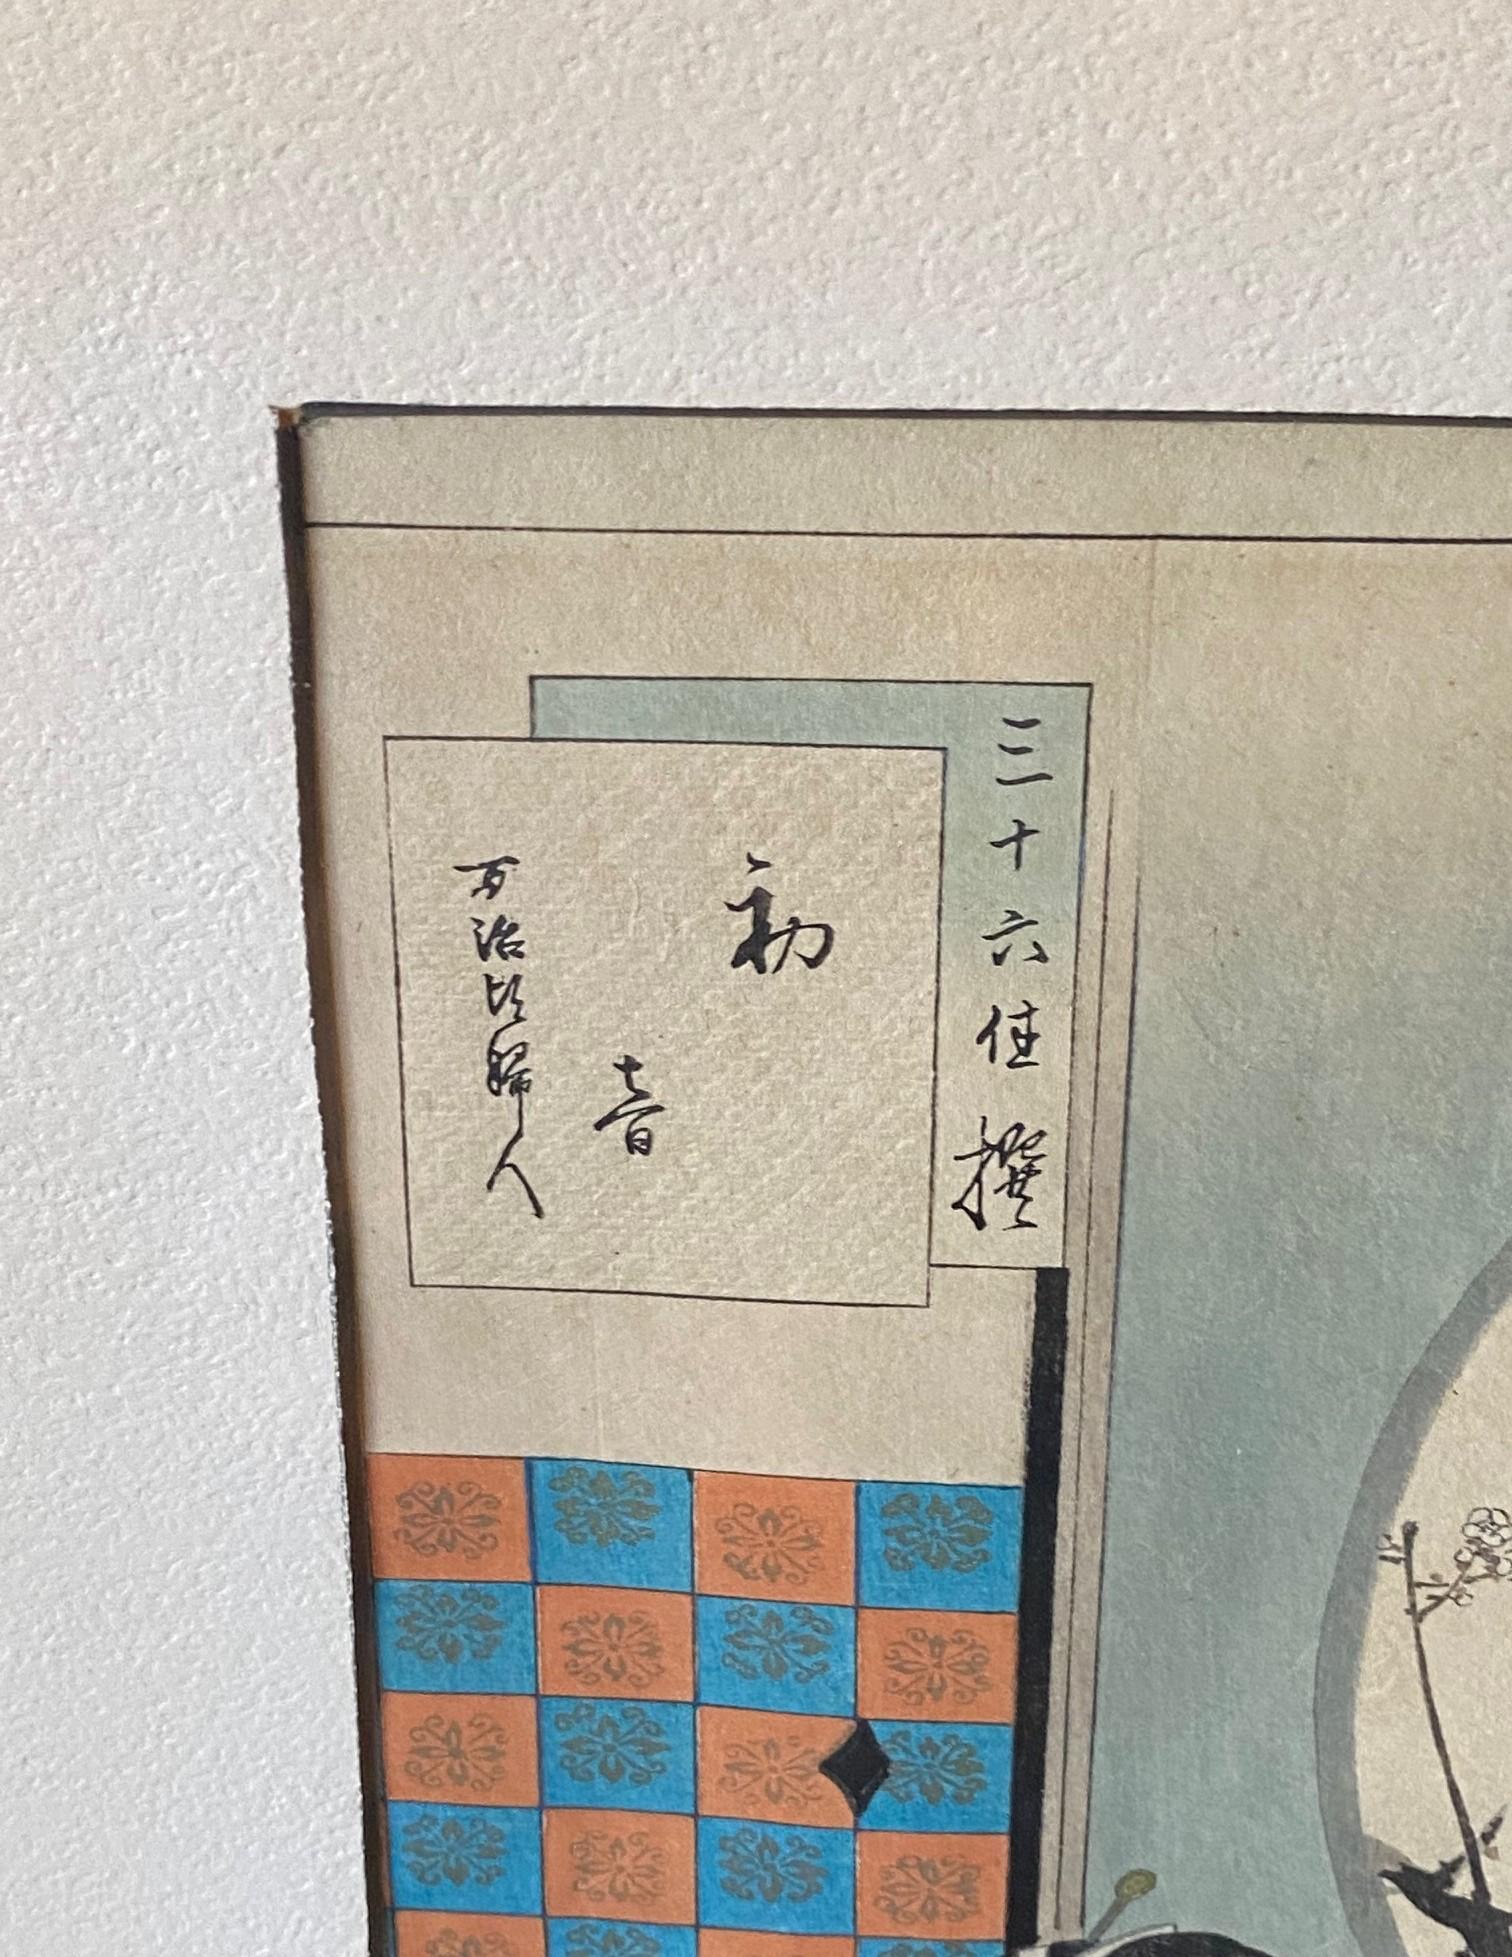 三十六佳撰
初
音
万治頃婦人